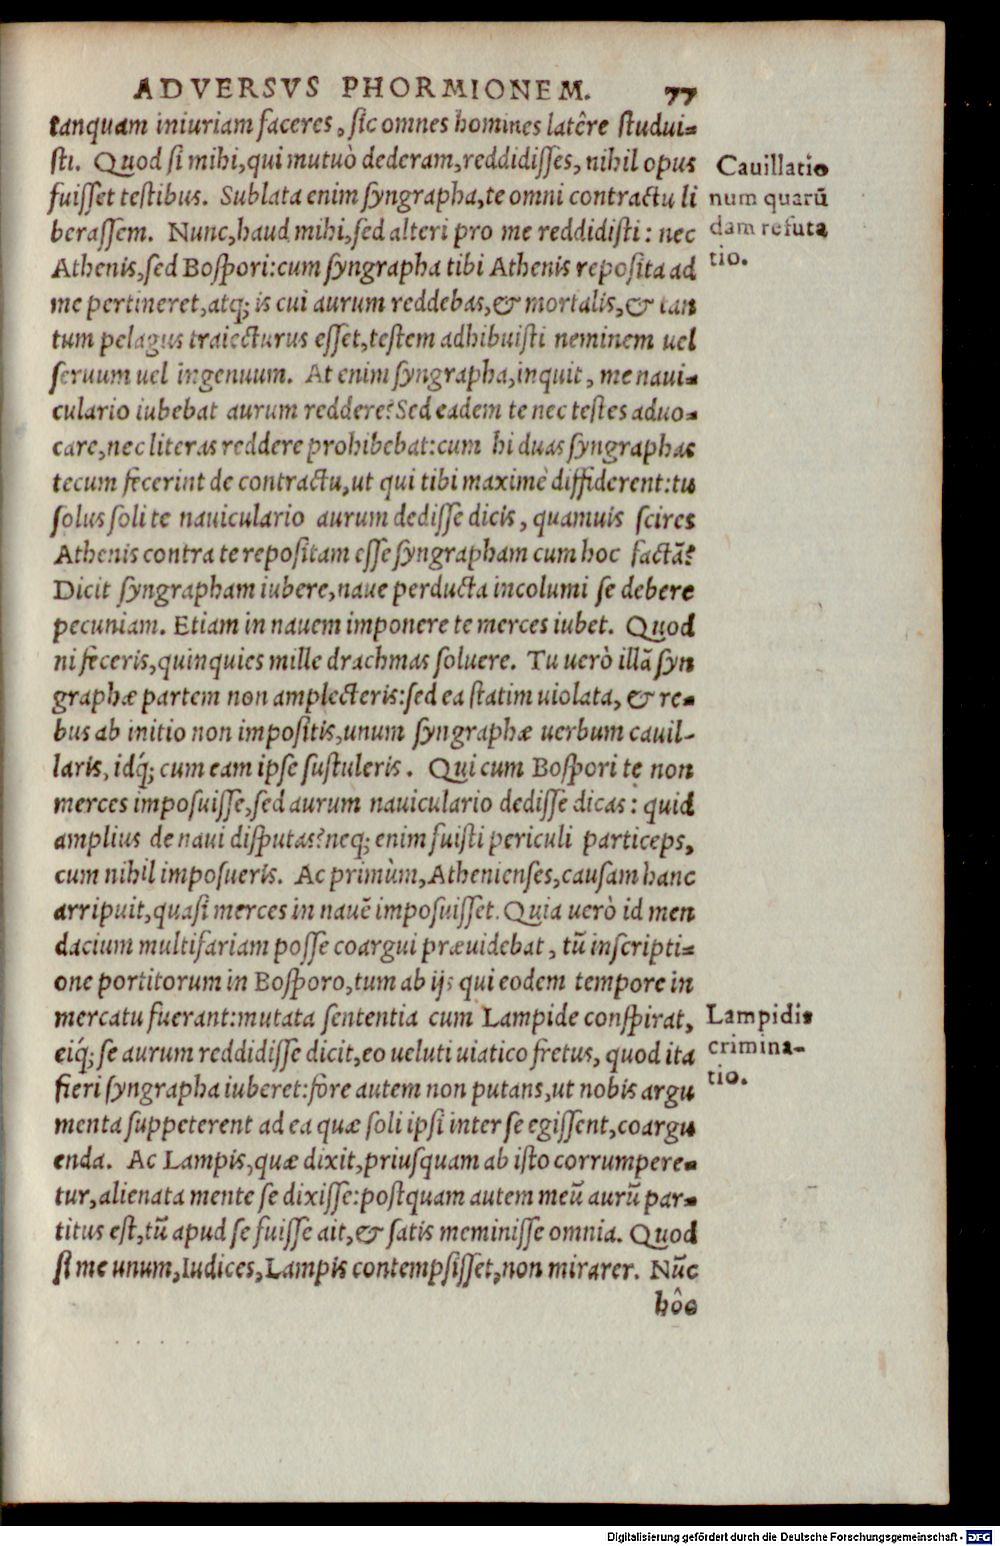 ADVERSVS PHORMIONEM. 77
tanquam iniuriam faceres, sic omnes homines latêre studui-
sti. Quod si mihi, qui mutuò dederam, reddidisses, nihil opus
fuisset testibus. Sublata enim syngrapha, te omni contractu li
berassem. Nunc, haud mihi, sed alteri pro me reddidisti: nec
Athenis, sed Bospori: cum syngrapha tibi Athenis reposita ad
me pertineret, atq; is cui aurum reddebas, & mortalis, & tan
tum pelagus traiecturus esset, testem adhibuisti neminem uel
seruum uel ingenuum. At enim syngrapha, inquit, me naui-
culario iubebat aurum reddere? Sed eadem te nec testes aduo-
care, nec literas reddere prohibebat: cum hi duas syngraphas
tecum fecerint de contractu, ut qui tibi maximè diffiderent: tu
solus soli te nauiculario aurum dedisse dicis, quamuis scires
Athenis contra te repositam esse syngrapham cum hoc factã?
Dicit syngrapham iubere, naue perducta incolumi se debere
pecuniam. Etiam in nauem imponere te merces iubet. Quod
ni feceris, quinquies mille drachmas soluere. Tu uerò illã syn
graphæ partem non amplecteris: sed ea statim uiolata, & re-
bus ab initio non impositis, unum syngraphæ uerbum cauil-
laris, idq́; cum eam ipse sustuleris. Qui cum Bospori te non
merces imposuisse, sed aurum nauiculario dedisse dicas: quid
amplius de naui disputas? neq; enim fuisti periculi particeps,
cum nihil imposueris. Ac primùm, Athenienses, causam hanc
arripuit, quasi merces in nauẽ imposuisset. Quia uerò id men
dacium multifariam posse coargui præuidebat, tũ inscripti-
one portitorum in Bosporo, tum ab ijs qui eodem tempore in
mercatu fuerant: mutata sententia cum Lampide conspirat,
eiq́; se aurum reddidisse dicit, eo ueluti uiatico fretus, quod ita
fieri syngrapha iuberet: fore autem non putans, ut nobis argu
menta suppeterent ad ea quæ soli ipsi inter se egissent, coargu
enda. Ac Lampis, quæ dixit, priusquam ab isto corrumpere-
tur, alienata mente se dixisse: postquam autem meũ aurũ par-
titus est, tũ apud se fuisse ait, & satis meminisse omnia. Quod
si me unum, Iudices, Lampis contempsisset, non mirarer. Nũc
hôc
Cauillatio
num quarũ
dam refuta
tio.
Lampidis
crimina-
tio.
Digitalisierung gefördert durch die Deutsche Forschungsgemeinschaft - DFG